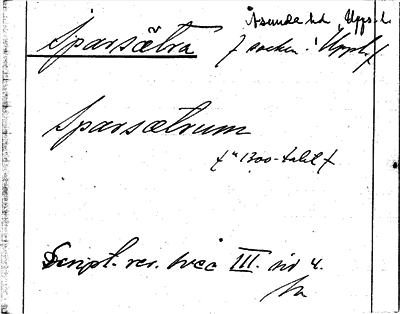 Åsunda hd, Upps. l.
Sparsätra
socken i Uppl.
Sparsætrum
1300-talet
Script. rer. svec III. sid 4.